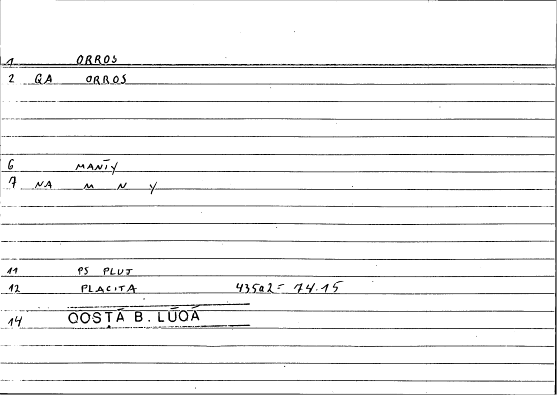 1 ORROS
2 QA ORROS
6 MANTY
7 NA M N Y
11 PS PLUT
12 PLACITA 435a2= 74.15
14 OOSTĀ B. LŪOĀ